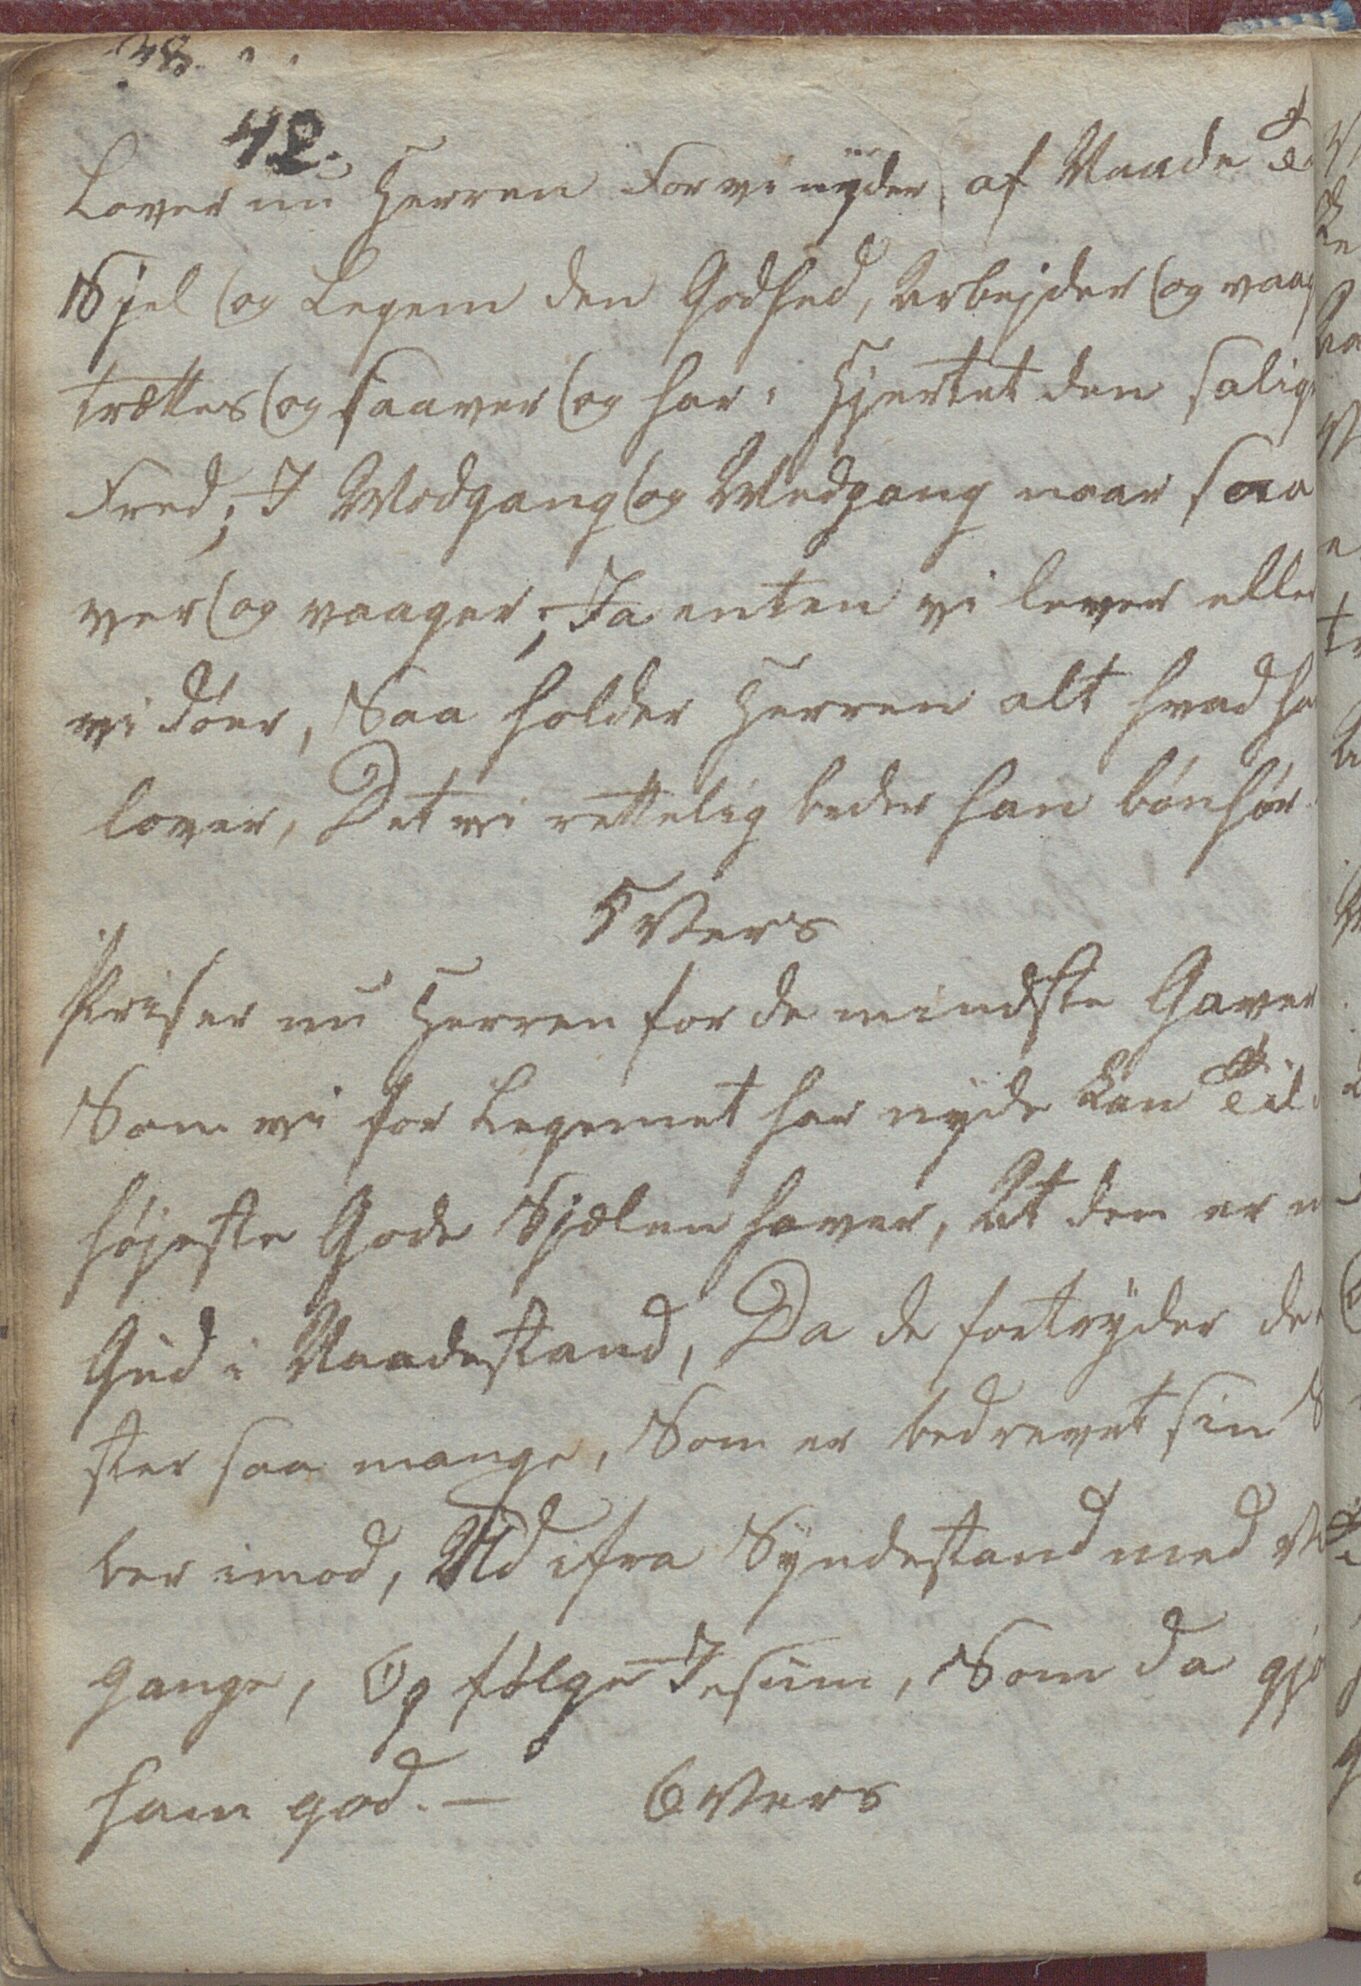 48.
42.
Lover nu Herren For vi nyder af Naade
Sjel og Legem den Godhed, Arbejder og vaag
trættes og saaver og har i Hjertet den salig
Fred; I Modgang og Medgang naar saa
ver og vaager; Ja enten vi lever eller
vi döer, Saa holder Herren alt hvad ha
lover, Det vi rettelig beder han bönhör
5 Vers
Priser nu Herren for de mindste Gaver
Som vi for Legemet har nyde kan Til
höjeste Gode Sjælen haver, At den er
Gud i Naadestand, Da de fortryder de
ster saa mange, Som er bedrevet sin
ber imod, Ud ifra Syndestand med
gange, Og fölge Jesum, Som da gjö
ham god. — 6 Vers